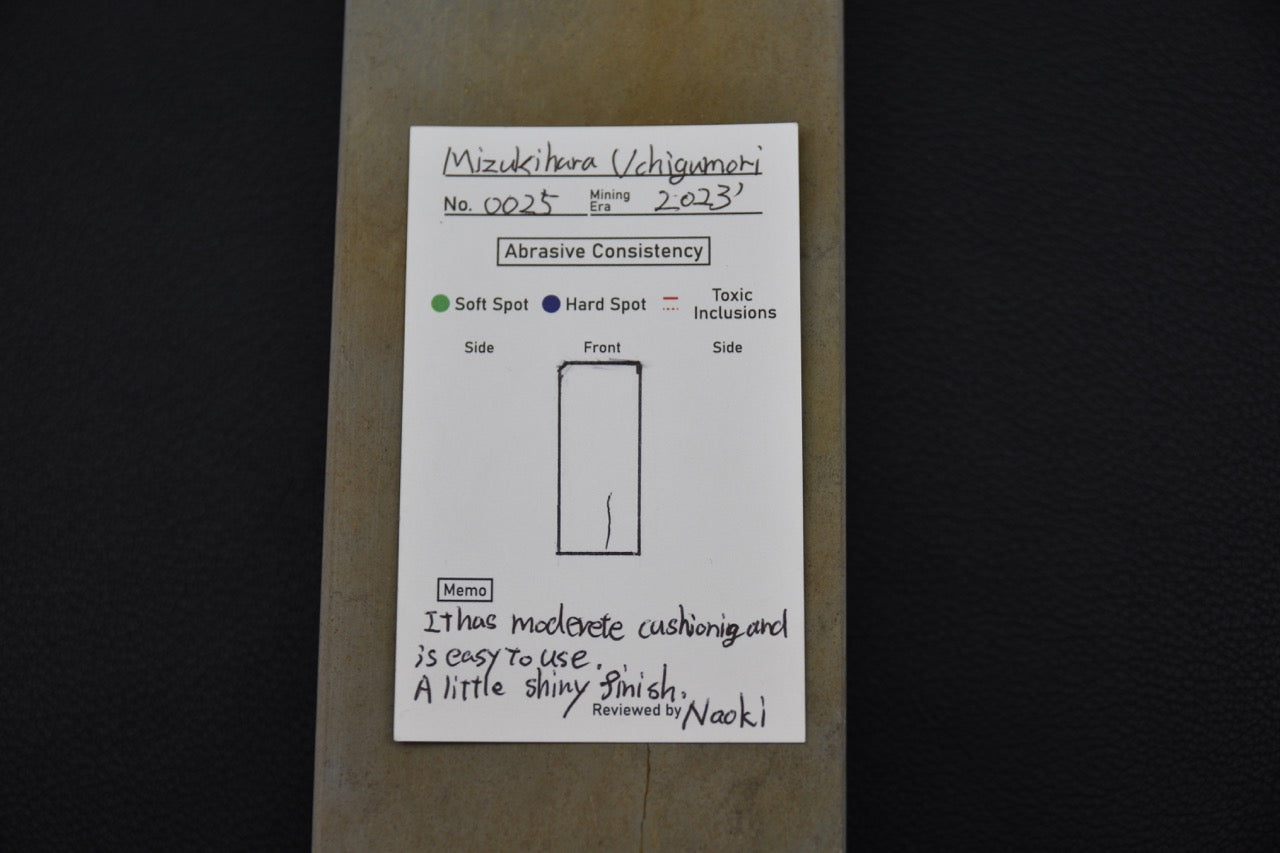 Mizukihara Uchigumori
No. 0025 Mining Era 2023'
Abrasive Consistency
Soft Spot Hard Spot Toxic Inclusions
Side Front Side
Memo
It has moderete cushionig and
is easy to use.
A little shiny finish.
Reviewed by Naoki